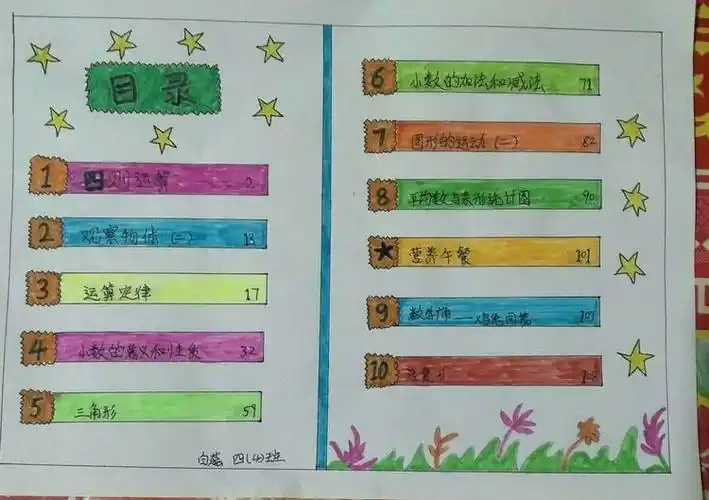 目录
1 四则运算 2
2 观察物体(二) 13
3 运算定律 17
4 小数的意义和性质 32
5 三角形 59
白蕊 四(4)班
6 小数的加法和减法 71
7 图形的运动(二) 82
8 平均数与条形统计图 90
★ 营养午餐 101
9 数学广 —— 鸡兔同笼 103
10 总复习 108